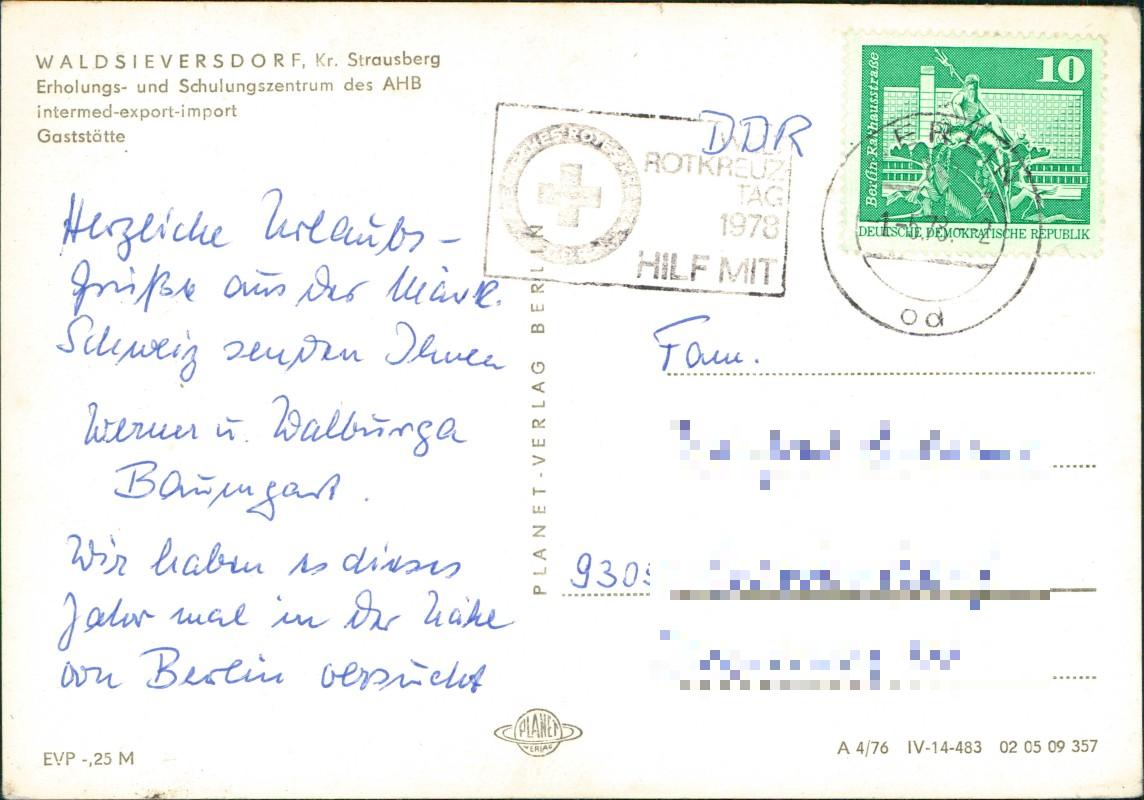 WALDSIEVERSDORF, Kr. Strausberg
Erholungs- und Schulungszentrum des AHB
intermed-export-import
Gaststätte
Herzliche Urlaubs-
grüße aus der Märk.
Schweiz senden Ihnen
Werner u. Walburga
Baumgart.
Wir haben es dieses
Jahr mal in der Nähe
von Berlin versucht
EVP -,25 M
PLANET-VERLAG BERLIN
PLANET
VERLAG
DDR
ROTKREUZ-
TAG
1978
HILF MIT
10
Berlin-Rathausstraße
DEUTSCHE DEMOKRATISCHE REPUBLIK
od
Fam.
A 4/76 IV-14-483 02 05 09 357